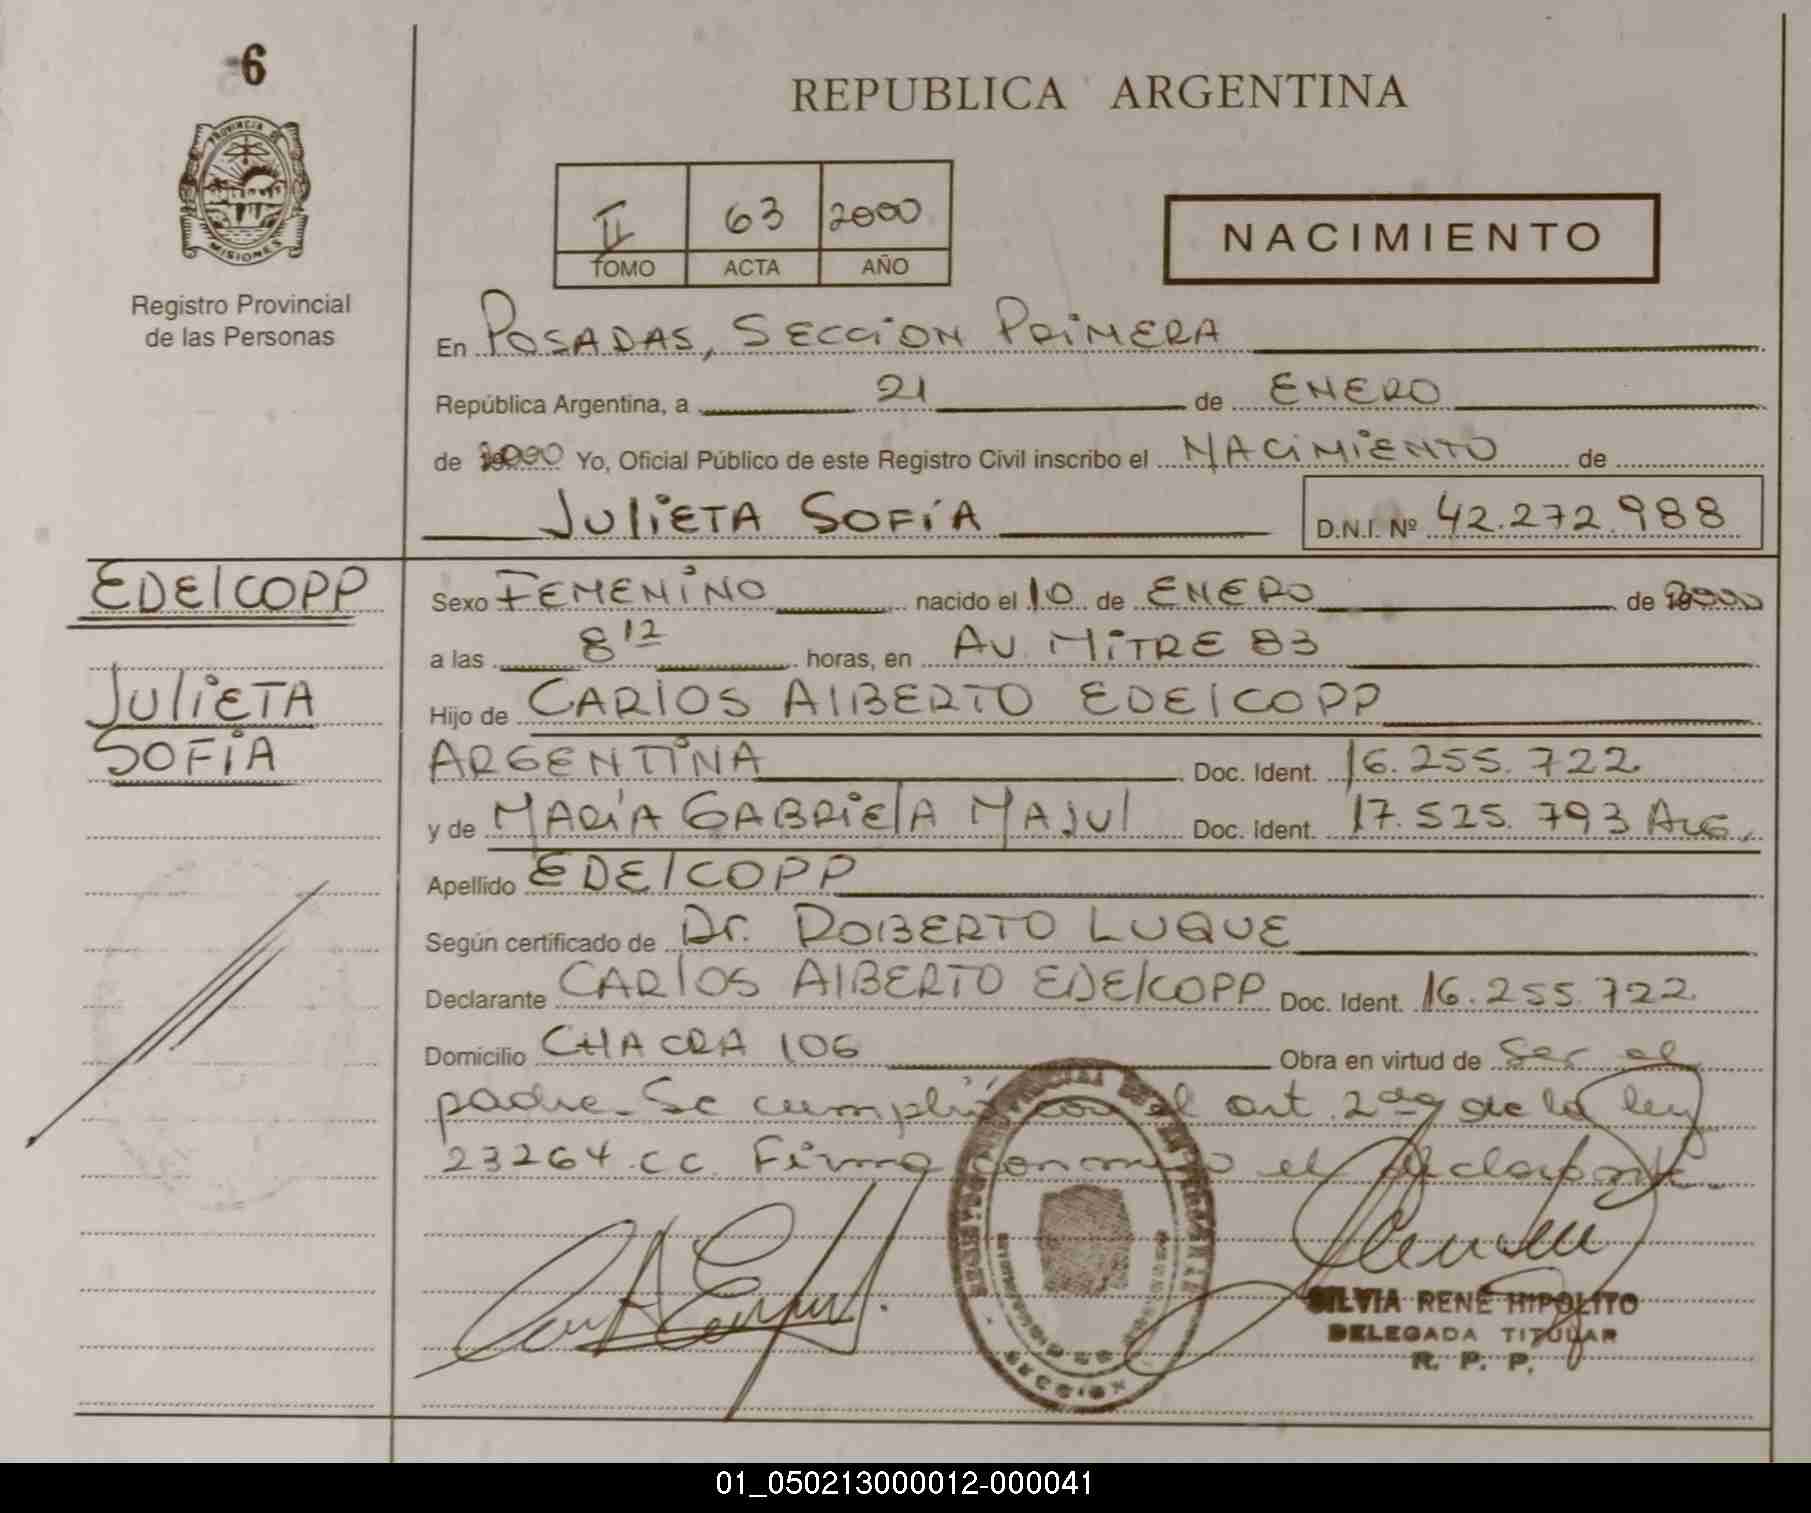 6
PROVINCIA DE
MISIONES
Registro Provincial
de las Personas
REPUBLICA ARGENTINA
II 63 2000
TOMO ACTA AÑO
NACIMIENTO
En POSADAS, SECCION PRIMERA
República Argentina, a 21 de ENERO
de 2000 Yo, Oficial Público de este Registro Civil inscribo el NACIMIENTO de
JULIETA SOFÍA D.N.I. Nº 42.272.988
EDELCOPP
JULIETA
SOFIA
Sexo FEMENINO nacido el 10 de ENERO de 2000
a las 8 12 horas, en AV. MITRE 83
Hijo de CARLOS ALBERTO EDELCOPP
ARGENTINA Doc. Ident. 16.255.722
y de MARÍA GABRIELA MAJUL Doc. Ident. 17.525.793 ARG.
Apellido EDELCOPP
Según certificado de Dr. ROBERTO LUQUE
Declarante CARLOS ALBERTO EDELCOPP Doc. Ident. 16.255.722
Domicilio CHACRA 106 Obra en virtud de ser el
padre. Se cumplió con el art. 2do de la ley
23264 C.C. Firma conmigo el declarante.
SECCION
SILVIA RENE HIPOLITO
DELEGADA TITULAR
R. P. P.
01_050213000012-000041